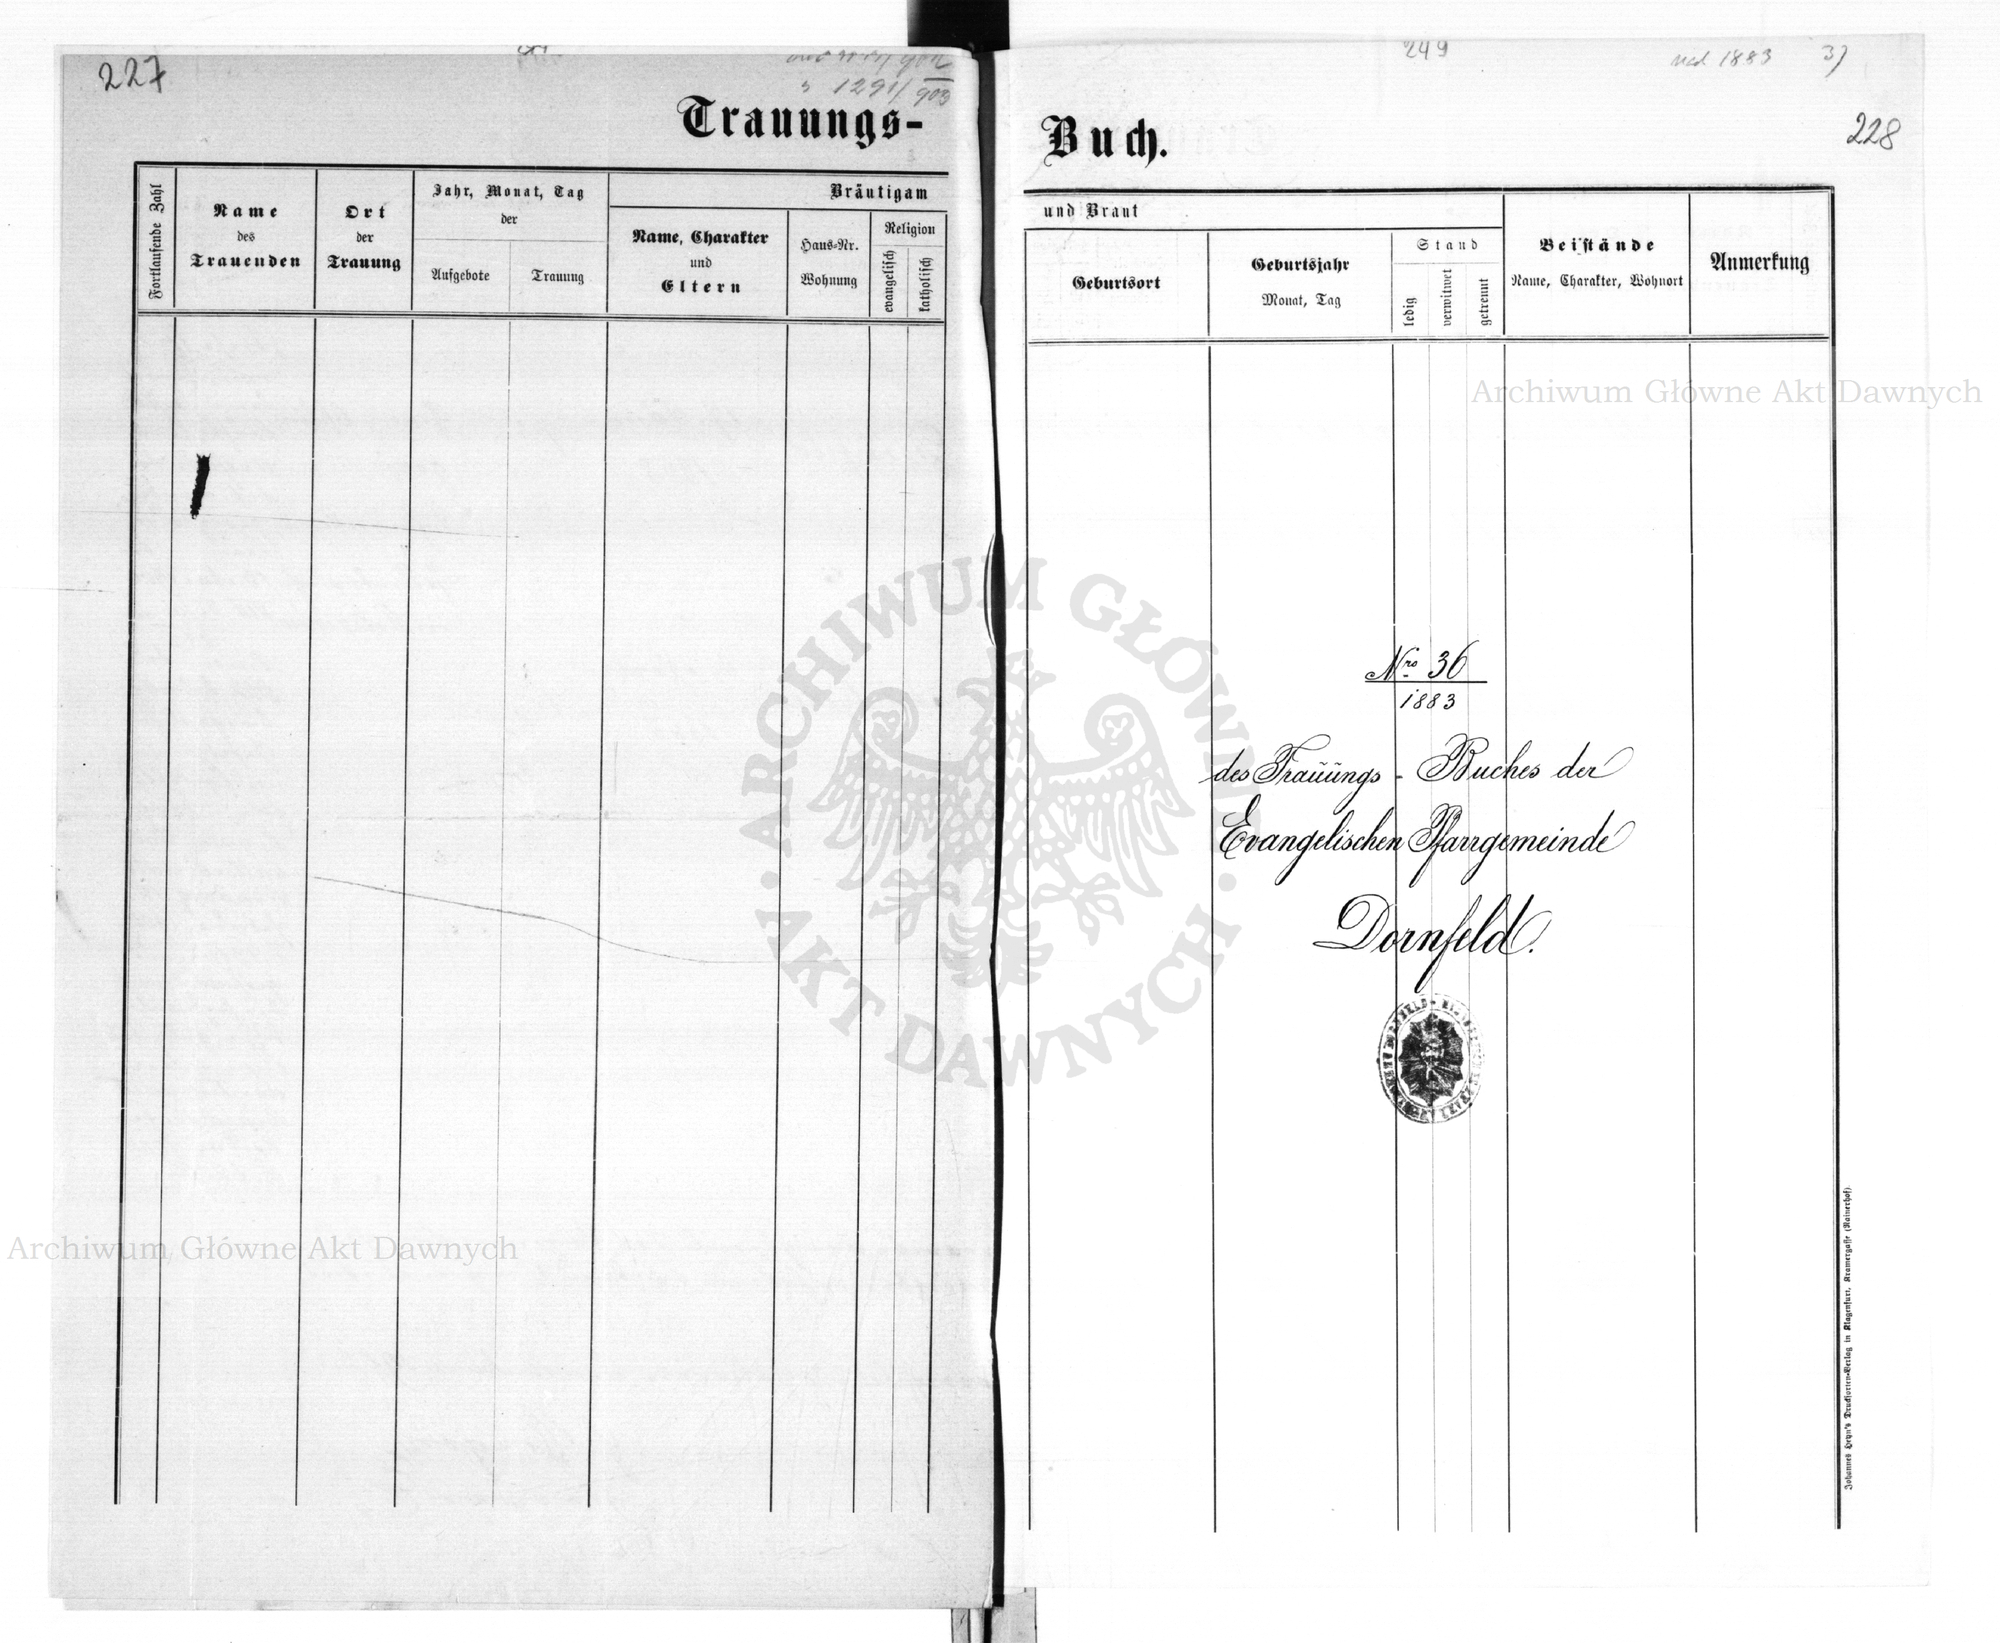 227
1291/903
Trauungs-
Fortlaufende Zahl
Name
des
Trauenden
Ort
der
Trauung
Jahr, Monat, Tag
der
Aufgebote
Trauung
Bräutigam
Name, Charakter
und
Eltern
Haus-Nr.
Wohnung
Religion
evangelisch
katholisch
249
1883
3)
228
Buch.
und Braut
Geburtsort
Geburtsjahr
Monat, Tag
Stand
ledig
verwitwet
getrennt
Beistände
Name, Charakter, Wohnort
Anmerkung
Archiwum Główne Akt Dawnych
Nro 36
1883
des Traŭŭngs - Buches der
Evangelischen Pfarrgemeinde
Dornfeld.
ARCHIWUM GŁÓWNE
AKT DAWNYCH
Archiwum Główne Akt Dawnych
Johannes Heyn's Drucksorten-Verlag in Klagenfurt, Kramergasse (Rainerhof).